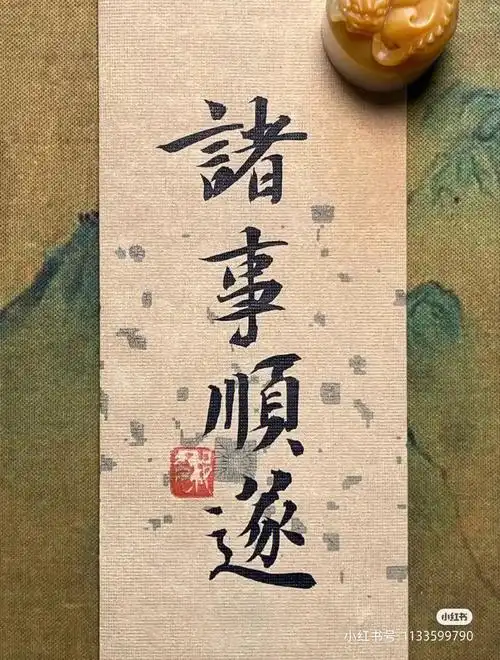 諸事順遂
小红书
小红书号:1133599790